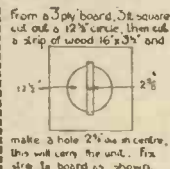 From a 3 ply board, 3ft square
cut out a 12½" circle, then cut
a strip of wood 16"x 3½" and
12½"
make a hole 2⅝" dia in centre,
this will carry the unit. Fix
strip to board as shown